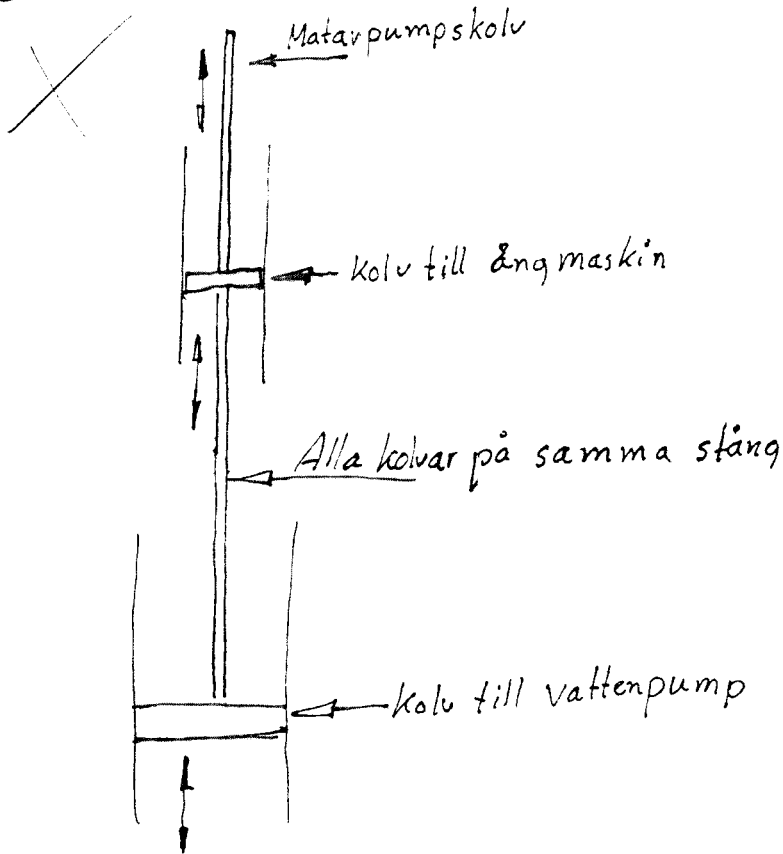 Matarpumpskolv
Kolv till ångmaskin
Alla kolvar på samma stång
Kolv till vattenpump